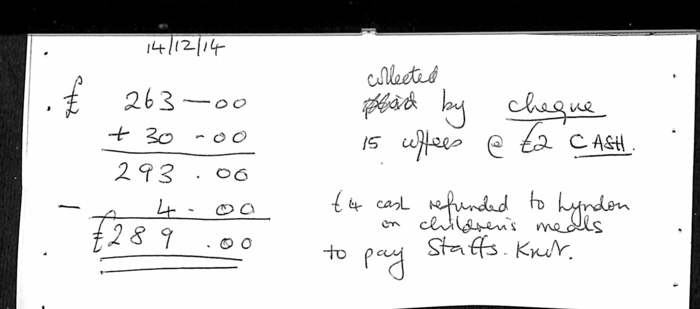 14/12/14
£ 263-00 collected by cheque
+ 30-00 15 coffees @ £2 CASH.
293.00
- 4.00 £4 cash refunded to Lyndon
on children's meals
£289.00 to pay Staffs. Knot.